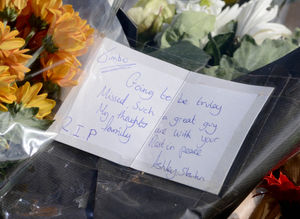 Jimbo
Going to be truley
Missed, Such a great guy
My thoughts are with your
family Rest in peace
R.I.P
Ashley